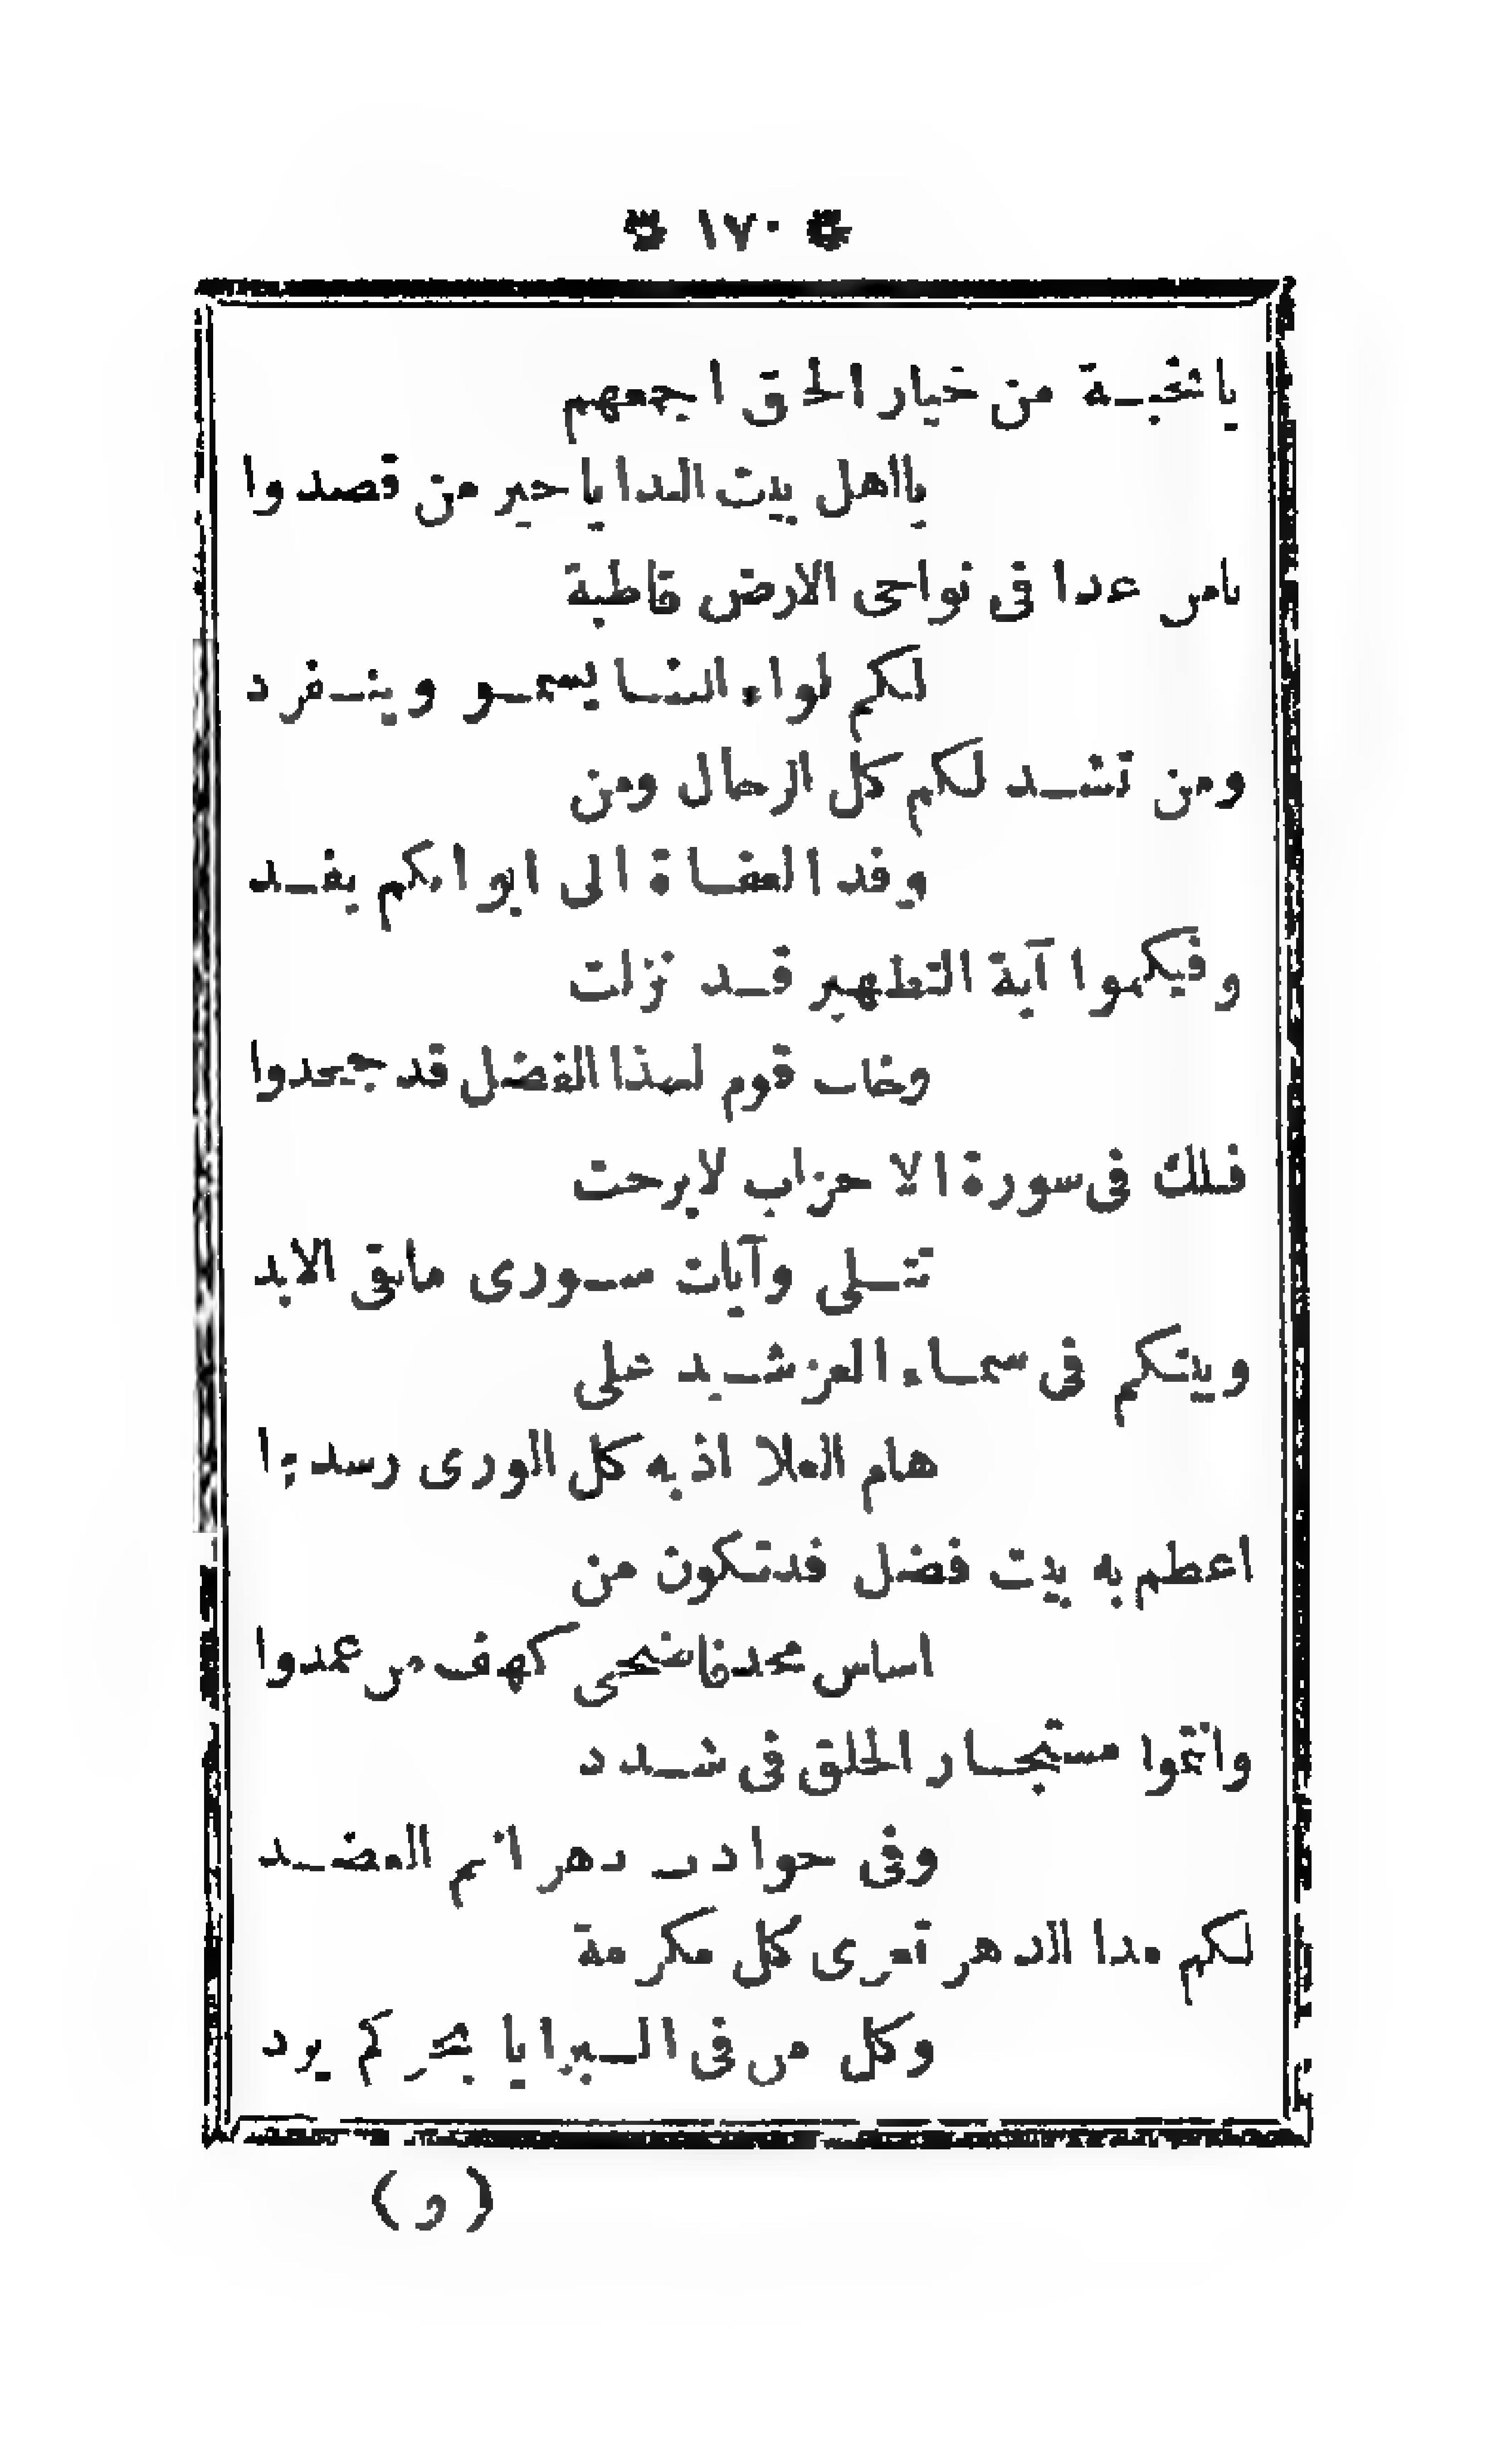 ١٧٠
يا نخبة من خيار الخلق اجمعهم
يا اهل بيت الندا يا خير من قصدوا
يا من غدا فى نواحى الارض قاطبة
لكم لواء الثنا يسمو وينفرد
ومن تشد لكم كل الرحال ومن
وفد العفاة الى ابوابكم يفد
وفيكموا آية التطهير قد نزلت
وخاب قوم لهذا الفضل قد جحدوا
فلك فى سورة الاحزاب لابرحت
تتلى وآيات سورى مابقى الابد
وبيتكم فى سماء العز شيد على
هام العلا اذ به كل الورى سعدوا
اعظم به بيت فضل قد تكون من
اساس مجد فاضحى كهف من عمدوا
وانتموا مستجار الخلق فى شدد
وفى حوادث دهر انتم العضد
لكم مدا الدهر تعزى كل مكرمة
وكل من فى البرايا بحركم يرد
(و)